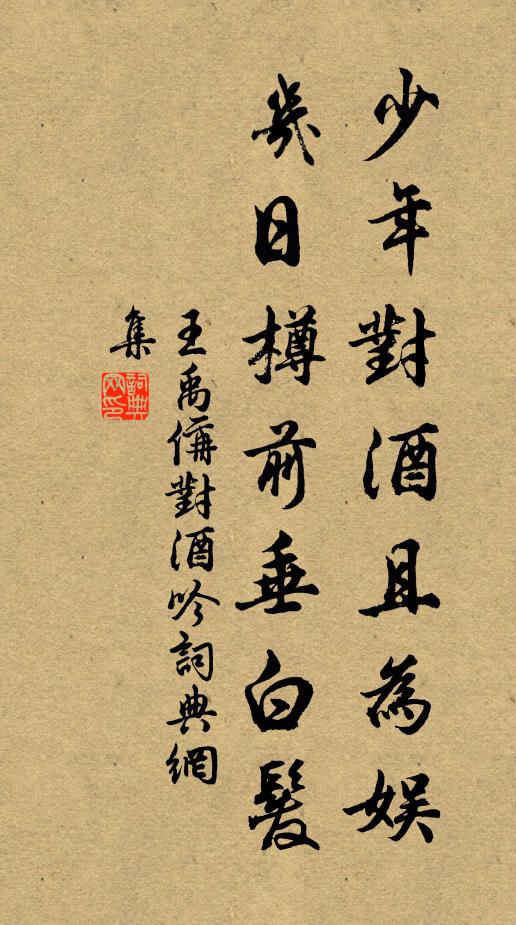 少年對酒且為娱
幾日樽前垂白髮
王禹偁對酒吟詞典網
集
詞典網印